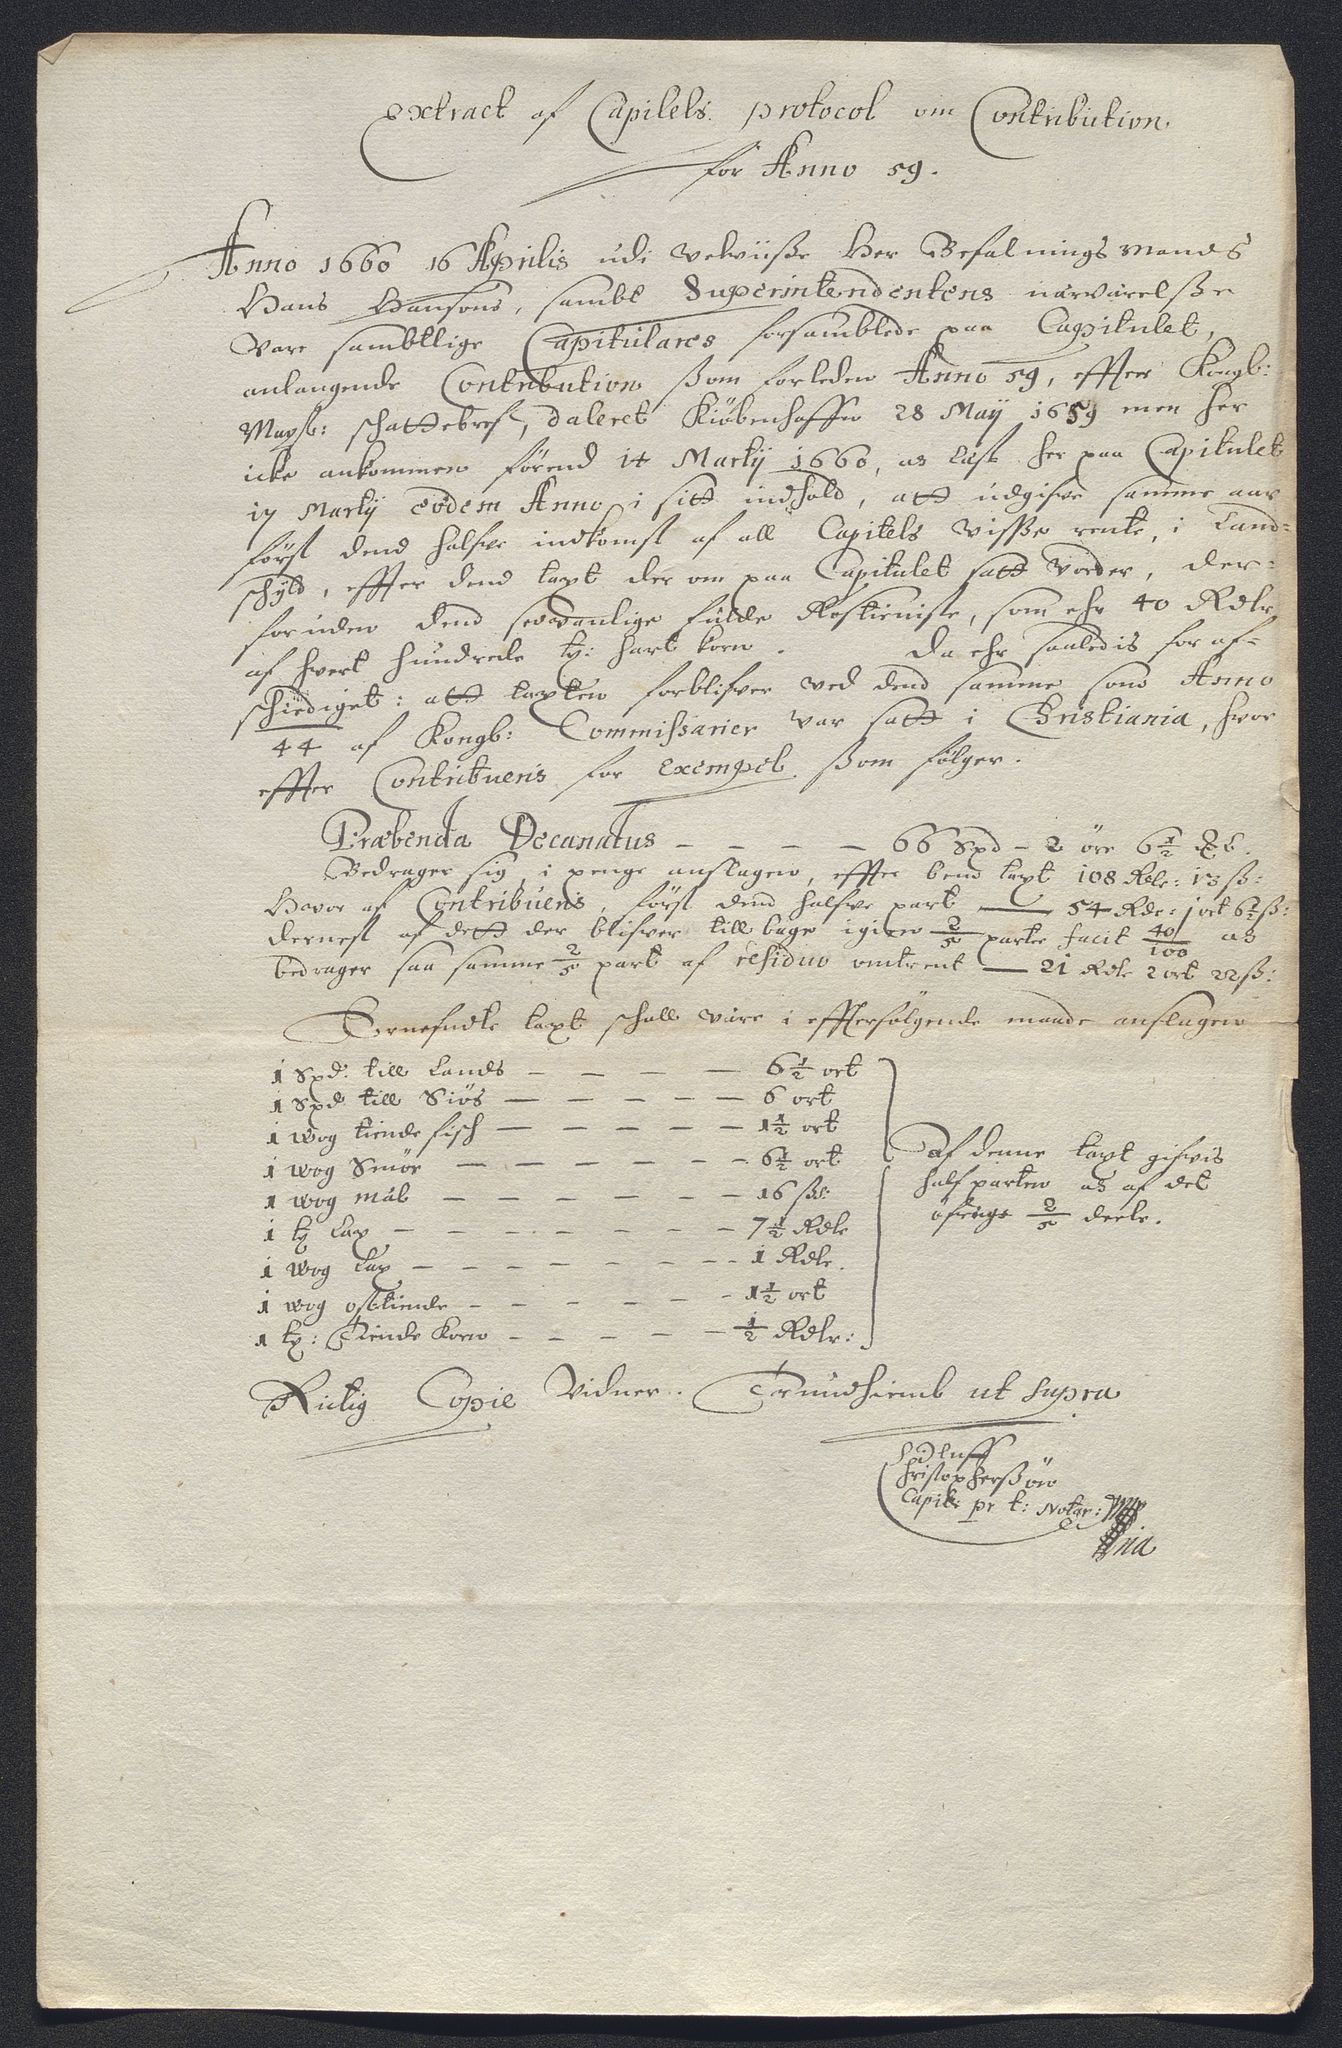 Extract af Capitels protocol om Contribution
for Anno 59.
Anno 1660 16 Aprilis udi velviisse Her Befalningsmands
Hans Hansons, sambt Superintendentens nærværelsse
vare sambtlige Capitulares forsamblede paa Capitulet,
anlangende Contribution ssom forleden Anno 59, effter Kongb:
Mayst: schattebref, dateret Kiøbenhaffn 28 Maij 1659 men her
icke ankommen førend 14 Martij 1660, as læst her paa Capitulet
17 Martij eodem Anno i sitt indhold, att udgifve samme aar
først dend halfve indkomst af all Capitels visse rente, i Land-
schyld, effter dend taxt der om paa Capitulet satt vorder, der-
foruden dend sedvanlige fulde Rostieniste, som ehr 40 Rdlr
af hvert hundrede tr: hart korn. Da ehr saaledis for af-
schiediget: att taxten forblifver ved dend samme som Anno
44 af Kongb: Commissarier var satt i Christiania, hvor
effter Contribueris for exempel ssom følger.
Præbenda Decanatus - - - - 66 Spd - 2 öre 6½
Bedrager sig i penge anslagen, effter bem taxt 108 Rdlr: 13 ß:
Hvor af Contribueris, først dend halfve part — 54 Rdr: 1 ort 6½ ß:
dernest af dett der blifver tilbage igien 2/5 parter facit 40/100 as
bedrager saa samme 2/5 part af residuo omtrent — 21 Rdlr 2 ort 22 ß:
Fornefndte taxt schall være i effterfølgende maade anslagen
1 Spd: till Lands - - - - 6½ ort
1 Spd till Siøs - - - - - 6 ort
1 wog tiende fisch - - - - - 1½ ort
1 wog Smør - - - - - - 6½ ort
1 wog miäl - - - - - - 16 ßl:
1 tr Lax - - - - - - 7½ Rdlr
1 wog Lax - - - - - - - 1 Rdlr.
1 wog ostetiende - - - - - - 1½ ort
1 tr: Tiende Korn - - - - - ½ Rdlr:
Af denne taxt gifvis
half parten as af det
öfrige 2/5 deele.
Richtig Copie Vidner. Trundhiemb ut supra
Oluff
Christopherssøn
Capit: pr t: Notar:
mpria